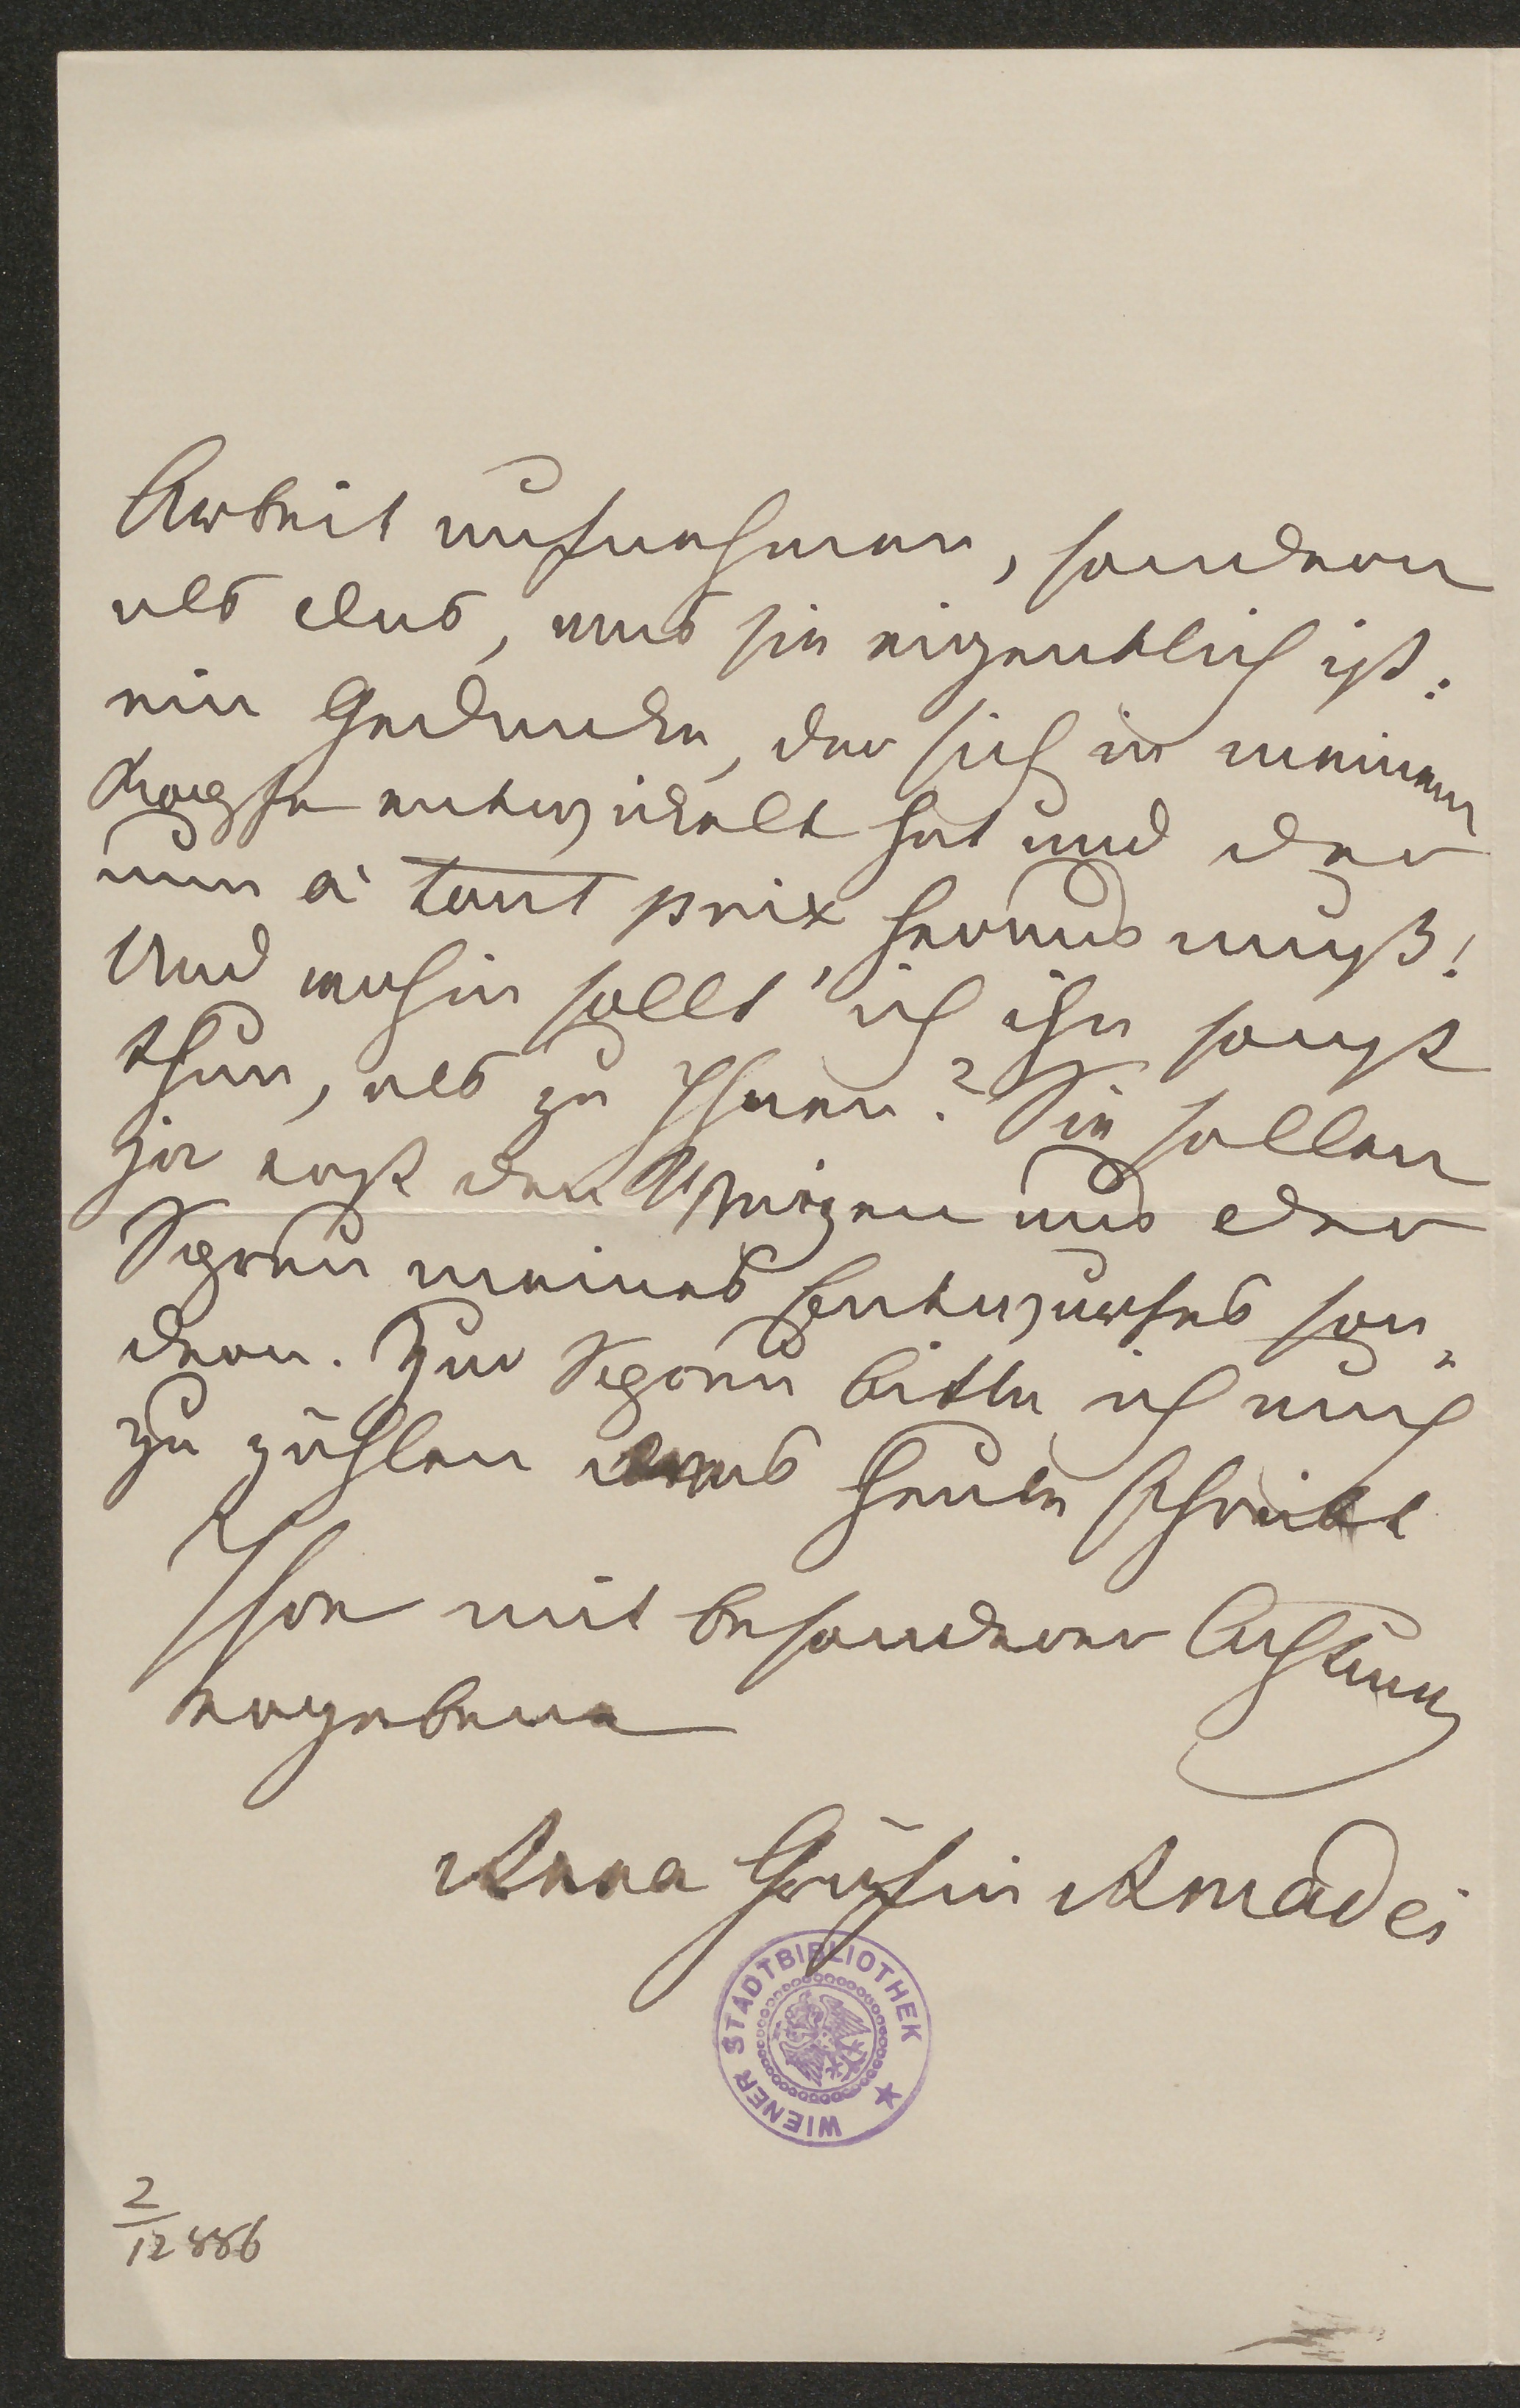 Arbeit aufnehmen, sondern
als das, was sie eigentlich ist:
ein Gedanke, der sich in meinem
Kopfe entwickelt hat und der
nun à tout prix heraus muß!
Und wohin sollt' ich ihn sonst
thun, als zu Ihnen? Sie sollen
ja erst den Waizen aus der
Spreu meines Entwurfes son-
dern. Zur Spreu bitte ich auch
zu zählen was heute schreibt
Ihre mit besonderer Achtung
ergebene
Anna Gräfin Amadei
WIENER STADTBIBLIOTHEK
2
12886